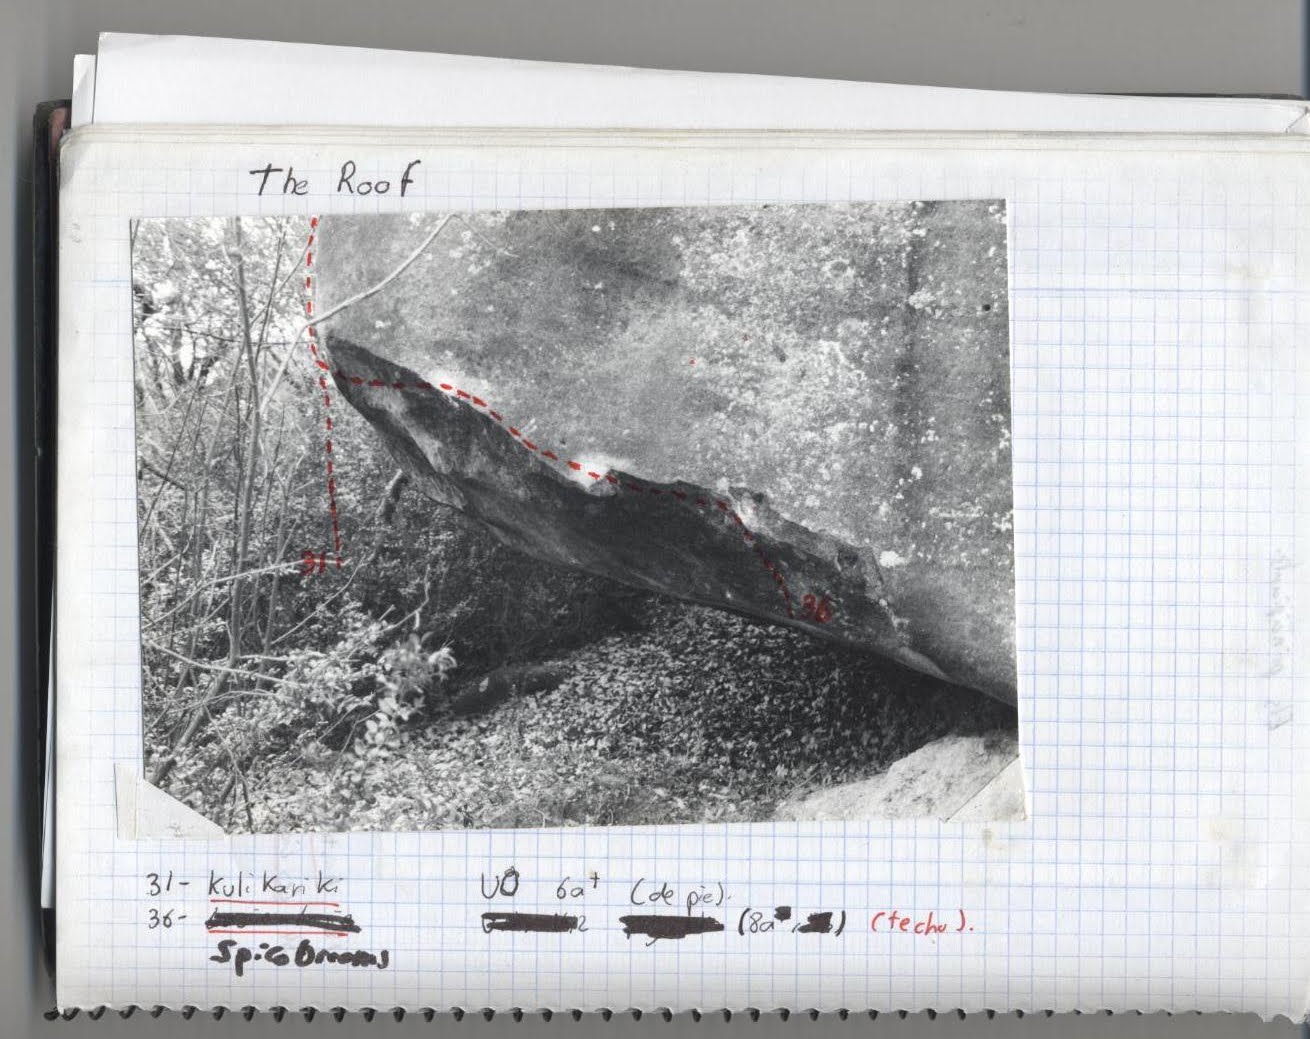 The Roof
31
36
31- Kulikariki V0 6a+ (de pie).
36- (8a (techo).